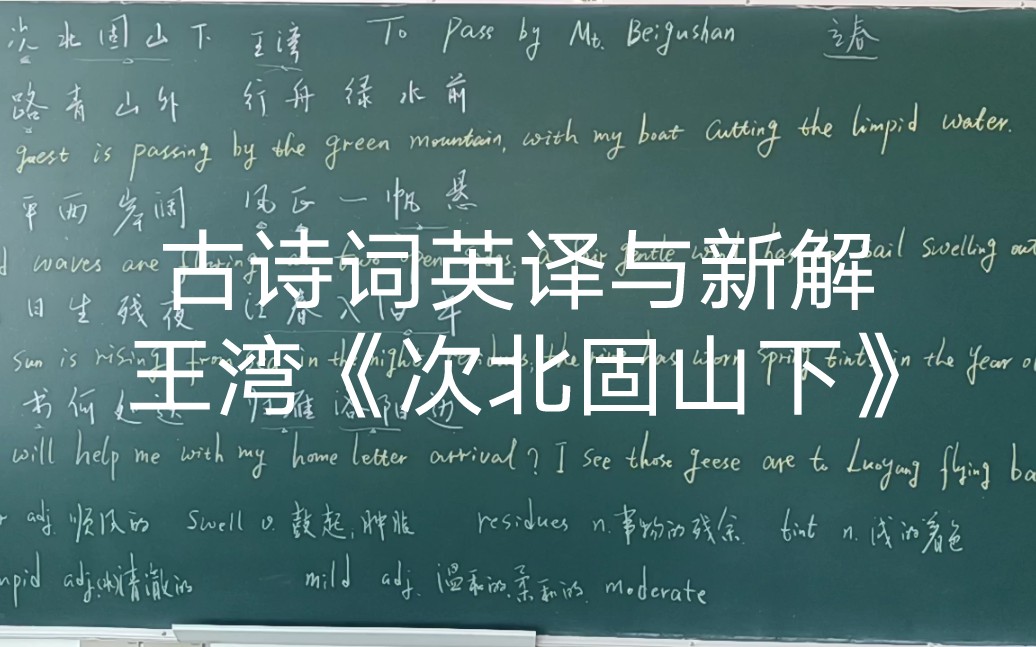 次北固山下 王湾 To Pass by Mt. Beigushan 立春
路青山外 行舟绿水前
guest is passing by the green mountain, with my boat cutting the limpid water.
平两岸阔 风正一帆悬
waves are two open sail swelling out
古诗词英译与新解
日生残夜 江春入旧年
sun is rising from in the night residues, the has worn spring tint in the year
王湾《次北固山下》
书何处达 归雁洛阳边
will help me with my home letter arrival? I see those geese are to Luoyang flying ba
adj. 顺风的 swell v. 鼓起,肿胀 residues n. 事物的残余 tint n. 浅的着色
mpid adj. 清澈的 mild adj. 温和的,柔和的 moderate